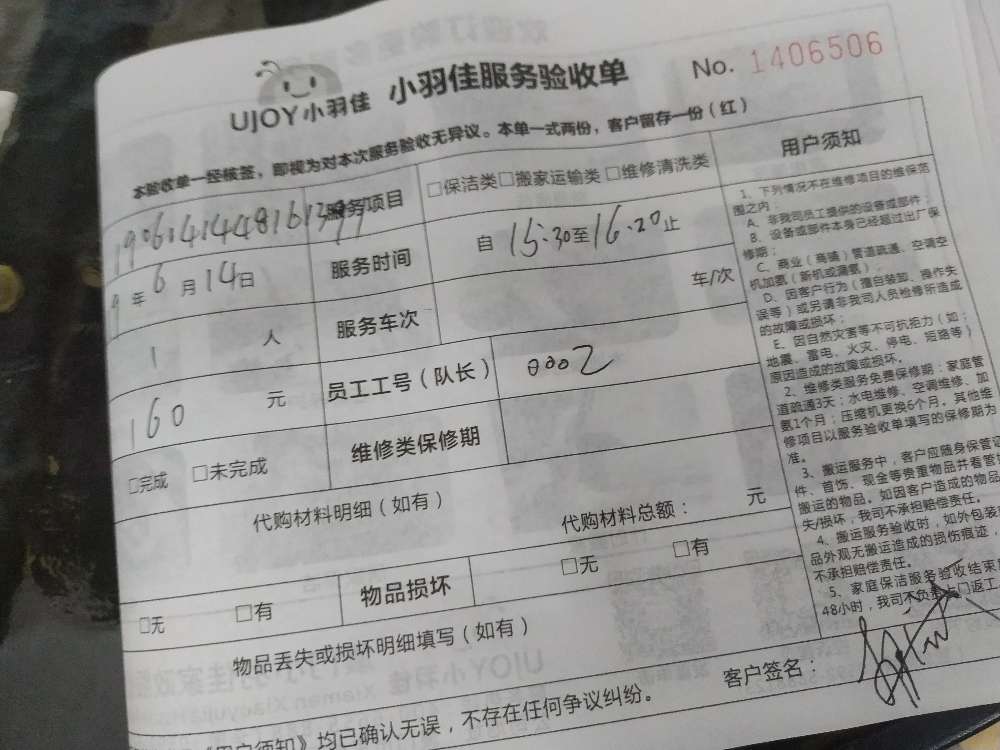 UJOY小羽佳 小羽佳服务验收单 No. 1406506
本验收单一经核签，即视为对本次服务验收无异议。本单一式两份，客户留存一份（红）
服务项目 □保洁类□搬家运输类□维修清洗类
9年6月14日 服务时间 自15:30至16:20止
1人 服务车次 车/次
160元 员工工号（队长） 0002
□完成 □未完成 维修类保修期
代购材料明细（如有） 代购材料总额： 元
□无 □有 物品损坏 □无 □有
物品丢失或损坏明细填写（如有）
用户须知》均已确认无误，不存在任何争议纠纷。 客户签名：
用户须知
1、下列情况不在维修项目的维保范
围之内：
A、非我司员工提供的设备或部件；
B、设备或部件本身已经超过出厂保
修期；
C、商业（商铺）管道疏通、空调空
机加氨（新机或漏氨）；
D、因客户行为（擅自装卸、操作失
误等）或另请非我司人员检修所造成
的故障或损坏；
E、因自然灾害等不可抗拒力（如：
地震、雷电、火灾、停电、短路等）
原因造成的故障或损坏。
2、维修类服务免费保修期：家庭管
道疏通3天；水电维修、空调维修、加
氨1个月；压缩机更换6个月，其他维
修项目以服务验收单填写的保修期为
准。
3、搬运服务中，客户应随身保管证
件、首饰、现金等贵重物品并看管
搬运的物品，如因客户造成的物品
失/损坏，我司不承担赔偿责任。
4、搬运服务验收时，如外包装
品外观无搬运造成的损伤痕迹，
不承担赔偿责任。
5、家庭保洁服务验收结束
48小时，我司不负责上门返工